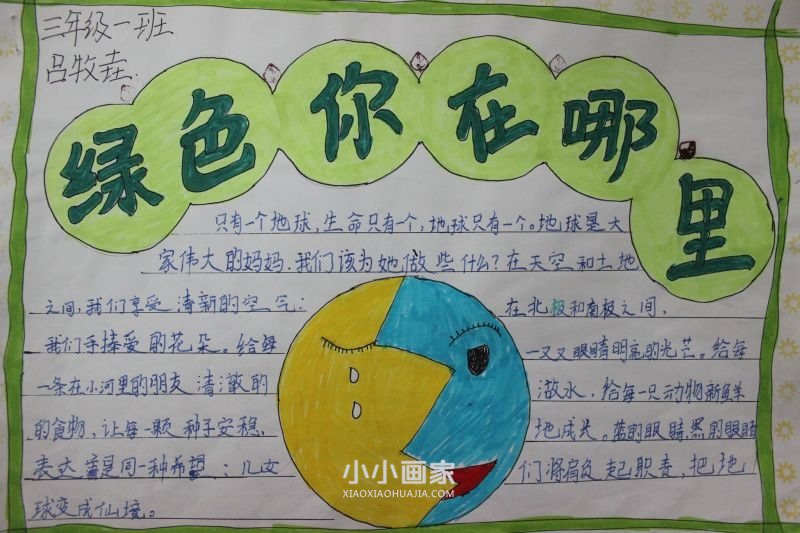 三年级一班
吕牧垚
绿色你在哪里
只有一个地球,生命只有一个,地球只有一个。地球是大
家伟大的妈妈.我们该为她做些什么?在天空和土地
之间,我们享受清新的空气; 在北极和南极之间,
我们手捧爱的花朵。给每 一双又眼睛明亮的光芒。给每
一条在小河里的朋友清澈的 澈水,给每一只动物新鲜
的食物,让每一颗种子安稳、 地成长。蓝的眼睛,黑的眼睛
表达着是同一种希望;儿女 们将肩负起职责,把地
球变成仙境。
小小画家
XIAOXIAOHUAJIA.COM